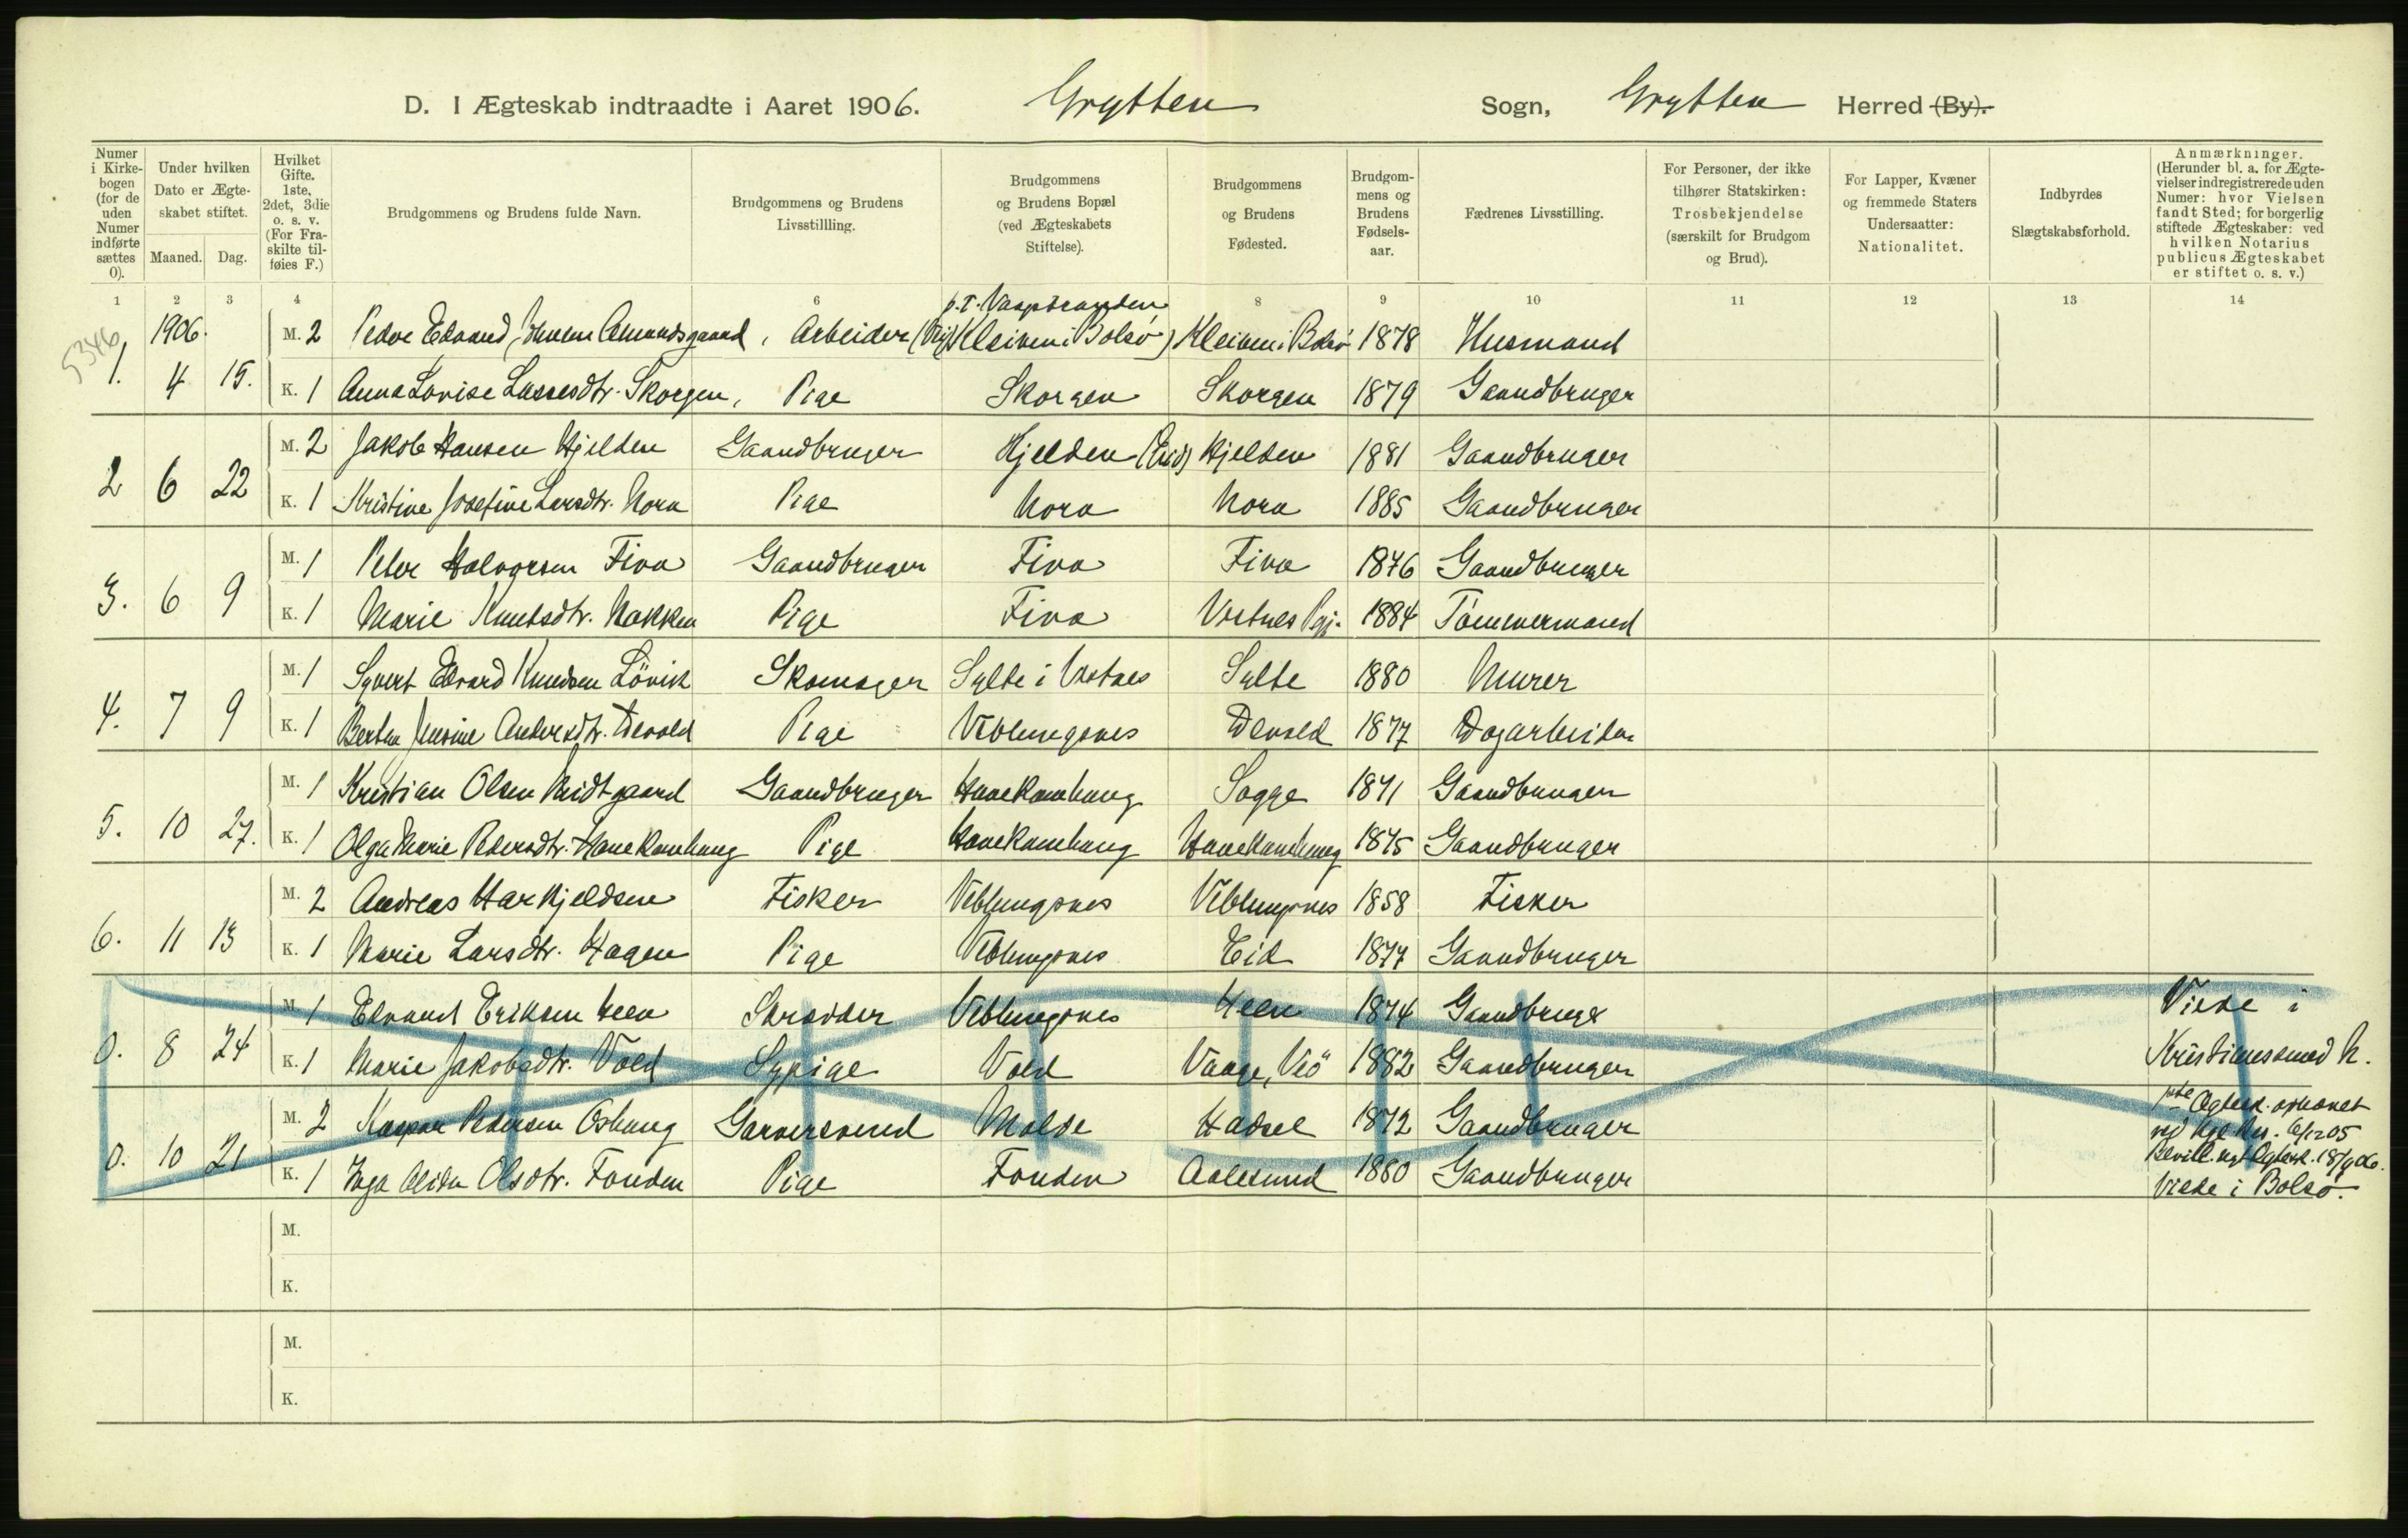 D. I Ægteskab indtraadte i Aaret 1906. Grytten Sogn, Grytten Herred (By).
Numer i Kirkebogen (for de uden Numer indførte sættes 0).
Under hvilken Dato er Ægteskabet stiftet.
Maaned. Dag.
Hvilket Gifte. 1ste, 2det, 3die o. s. v. (For Fraskilte tilføies F.)
Brudgommens og Brudens fulde Navn.
Brudgommens og Brudens Livsstillling.
Brudgommens og Brudens Bopæl (ved Ægteskabets Stiftelse).
Brudgommens og Brudens Fødested.
Brudgommens og Brudens Fødselsaar.
Fædrenes Livsstilling.
For Personer, der ikke tilhører Statskirken: Trosbekjendelse (særskilt for Brudgom og Brud).
For Lapper, Kvæner og fremmede Staters Undersaatter: Nationalitet.
Indbyrdes Slægtskabsforhold.
Anmærkninger. (Herunder bl. a. for Ægtevielser indregistrerede uden Numer: hvor Vielsen fandt Sted; for borgerlig stiftede Ægteskaber: ved hvilken Notarius publicus Ægteskabet er stiftet o. s. v.)
1 2 3 4 6 8 9 10 11 12 13 14
5346
1906.
1. 4 15. M. 2 Peder Edvard Jensen Amundsgaard, Arbeider Kleiven i Bolsø) Kleiven i Bolsø 1878 Husmand
K. 1 Anna Lovise Lassesdtr. Skorgen, Pige Skorgen Skorgen 1879 Gaardbruger
2 6 22 M. 2 Jakob Hansen Hjelden Gaardbruger Hjelden (Eid) Hjelden 1881 Gaardbruger
K. 1 Kristine Josefine Larsdtr. Nora Pige Nora Nora 1885 Gaardbruger
3. 6 9 M. 1 Peter Halvorsen Fiva Gaardbruger Fiva Fiva 1876 Gaardbruger
K. 1 Marie Knutsdtr. Nakken Pige Fiva Vestnes Pgj. 1884 Tømmermand
4. 7 9 M. 1 Syvert Edvard Knudsen Lövik Skomager Sylte i Vestnes Sylte 1880 Murer
K. 1 Berthe Jensine Andersdtr. Devold Pige Veblungsnes Devold 1877 Dagarbeider
5. 10 27. M. 1 Kristian Olsen Midtgaard Gaardbruger Hanekamhaug Sogge 1871 Gaardbruger
K. 1 Olga Marie Pedersdtr. Hanekamhaug Pige Hanekamhaug Hanekamhaug 1875 Gaardbruger
6. 11 13 M. 2 Andreas Harkjeldsen Fisker Veblungsnes Veblungsnes 1858 Fisker
K. 1 Marie Larsdtr. Hagen Pige Veblungsnes Eid 1877 Gaardbruger
0. 8 24 M. 1 Edvard Eriksen Heen Skrædder Veblungsnes Heen 1874 Gaardbruger Viede i
K. 1 Marie Jakobsdtr. Vold Sypige Vold Vaage, Veö 1882 Gaardbruger Kristianssund N.
0. 10 21 M. 2 Kaspar Pedersen Oshaug Garversvend Molde Hadsel 1872 Gaardbruger 1ste Ægtesk. ophævet
ved Kgl. Res. 6/12 05
K. 1 Inga Olida Olsdtr. Fonden Pige Fonden Aalesund 1880 Gaardbruger Bevill. nyt Ægtesk. 18/9 06.
Viede i Bolsø.
M.
K.
M.
K.